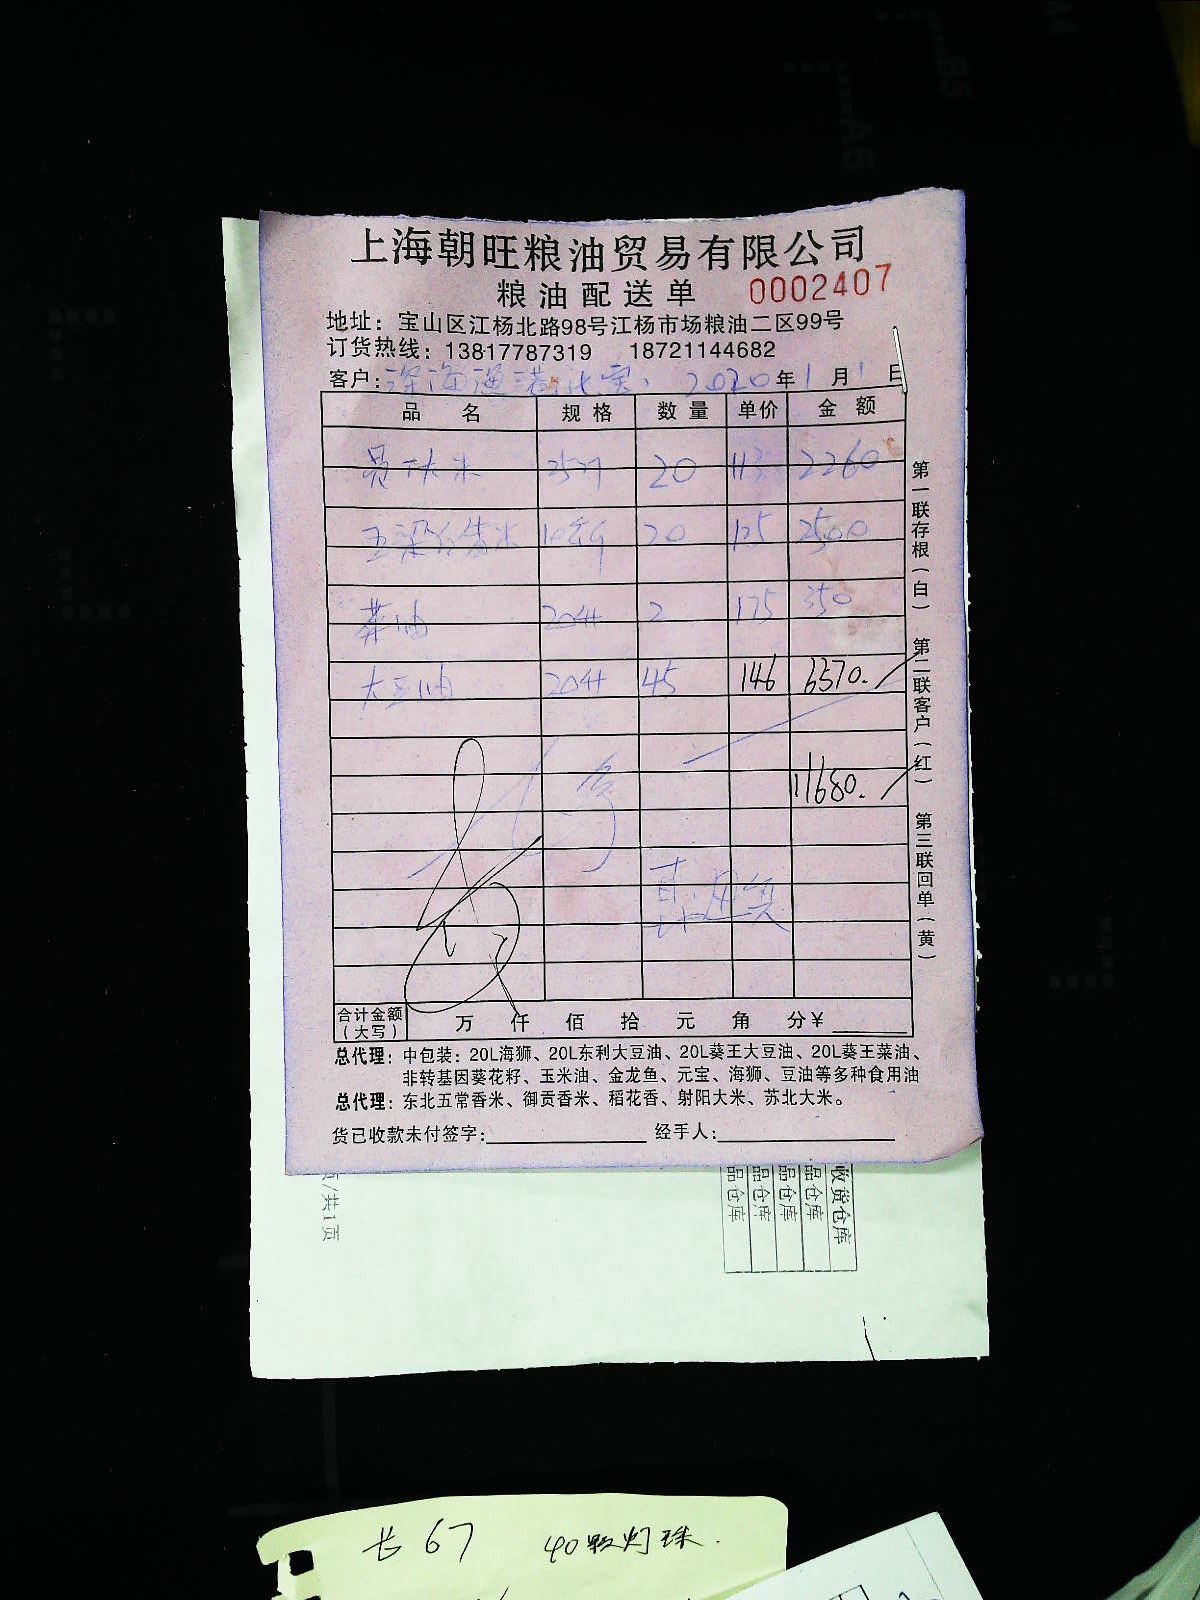 上海朝旺粮油贸易有限公司
粮油配送单 0002407
地址：宝山区江杨北路98号江杨市场粮油二区99号
订货热线：13817787319 18721144682
客户：深海渔港 2020年1月1日
品名 规格 数量 单价 金额
大米 20 113 2260
20 125 2500
菜油 20升 2 175 350
大豆油 20升 45 146 6570.
11680.
合计金额（大写） 万 仟 佰 拾 元 角 分¥
总代理：中包装：20L海狮、20L东利大豆油、20L葵王大豆油、20L葵王菜油、
非转基因葵花籽、玉米油、金龙鱼、元宝、海狮、豆油等多种食用油
总代理：东北五常香米、御贡香米、稻花香、射阳大米、苏北大米。
货已收款未付签字： 经手人：
第一联存根（白）
第二联客户（红）
第三联回单（黄）
页/共1页
收货仓库
品仓库
品仓库
品仓库
品仓库
长67 40颗灯珠.
A5
B5
A4